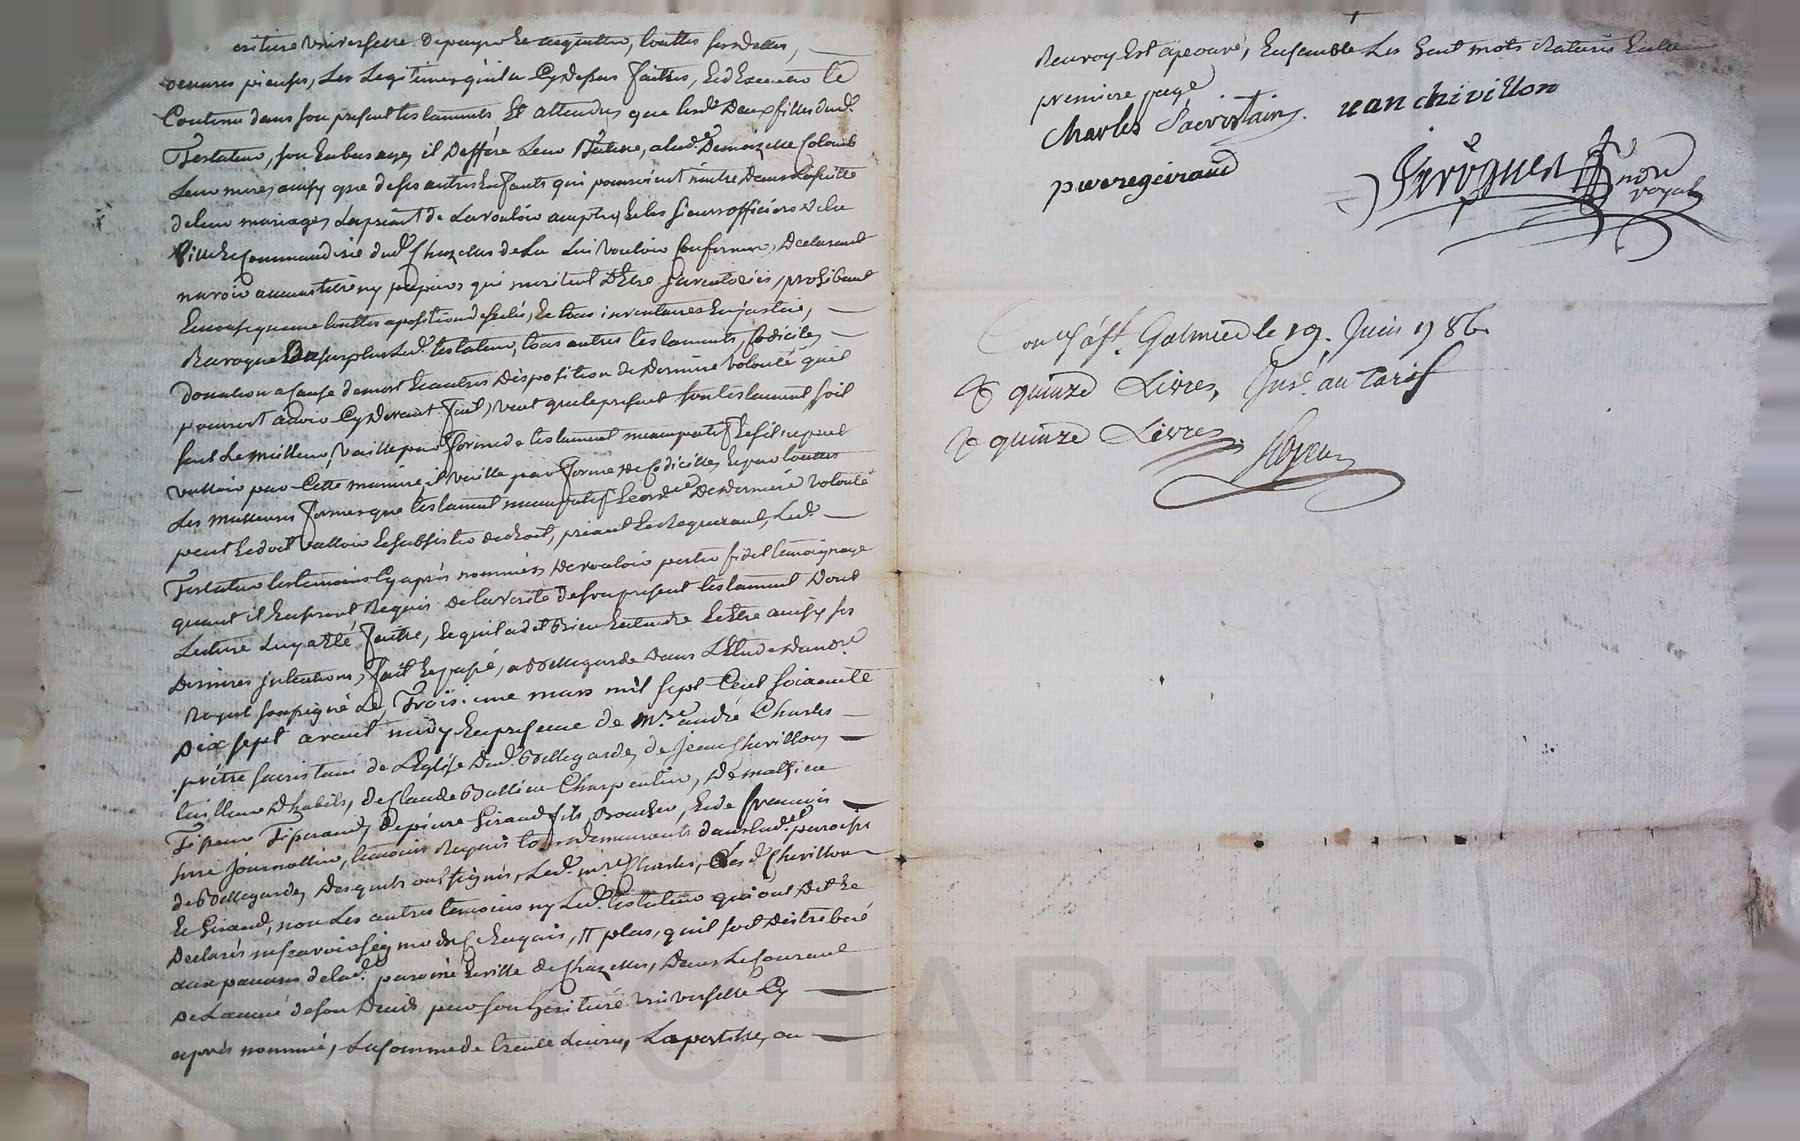 eritiere universelle de payer et acquitter touttes ses dettes,
oeuvres pieuses, Les Legitimes qu'il a Cy dessus faittes, Et d'Executer le
Contenu dans son present testament, Et attendu que lesd. Deux filles dud.
Testateur, sont en bas aage, il Deffère Leur Tutelle, a lad.e Demoizelle Colomb
Leur mere, ainsy que de ses autres Enfants qui pourroient naitre Dans La suitte
de leur mariage, La priant de La vouloir accepter, Et les sieurs officiers de la
Ville Et Commanderie dud. Chazelles de La Lui vouloir Confirmer, Declarant
n'avoir aucuns titre ny papiers qui meritent d'Etre Inventoriés, prohibant
En consequence touttes aposition de scelés, Et tous inventaires En justice,
Revoque Au surplus Led. testateur, tous autres testaments, Codiciles
Donation a Cause de mort Et autres Disposition de Derniere volonté qu'il
pourroit avoir Cy Devant fait, veut que le present son testament soit
seul Le meilleur, vaille par forme de testament nuncupatif Et s'il ne peut
valloir par Cette maniere, il vaille par forme de Codicilles Et par touttes
Les meilleures formes que testament nuncupatif Et ord.ce De Derniere volonté
peut Et doit valloir Et subsister de droit, priant Et Requerant, Led.
Testateur les temoins Cy après nommés De vouloir porter fidel temoignage
quant il En seront Requis De la Verité de son present testament Dont
Lecture Luy a Eté faitte, Ce qu'il a dit Bien Entendre Et Etre ainsy ses
Dernieres intentions, fait Et passé, a Bellegarde Dans L'Etude Du not.re
Royal soussigné Le Troisieme mars mil sept Cent soixante
Dix sept avant midy En presence de m.re andré Charles
prêtre sacristain de L'Eglise Dud. Bellegarde, de Jean Chevillon
tailleur D'habits, de Claude Charpentier, De mathieu
de pierre Giraud fils Boucher, Et de françois
journallier, temoins Requis tous demeurants dans lad.e paroisse
de Bellegarde, Desquels ont signés, Led. m.re Charles, Les d. Chevillon
Et Giraud, non Les autres temoins ny Led. testateur qui ont Dit Et
Declarés ne savoir signer de ce Enquis, // plus, qu'il soit Distribué
aux pauvres de lad.e paroisse Et ville de Chazelles, Dans Le Courant
De L'année de son Decès par son heritiere universelle Cy
après nommée, La somme de trente Livres, La postille, ou
Renvoy Est aprouvé, Ensemble Les huit mots Raturés En la
premiere page
Charles Sacristain. jean chivillon
pierre geiraud
not
royal
Con.lé a St. Galmier le 19. Juin 1786.
R quinze Livres, Ins.é au tarif
R quinze Livres.
CHAREYRON